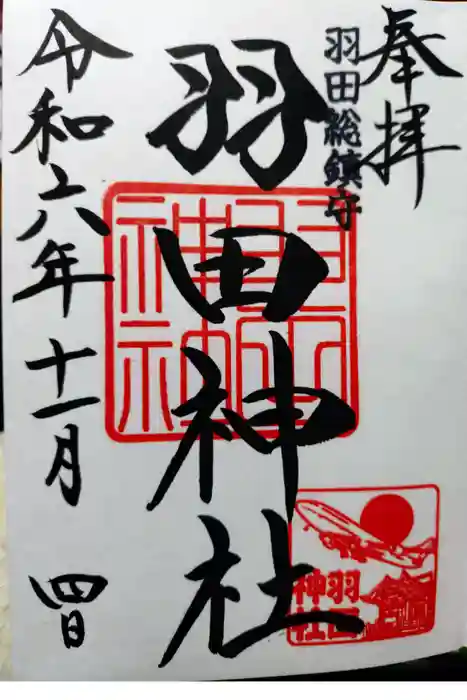 奉拝
羽田総鎮守
羽田神社
令和六年十一月四日
羽田神社
羽田
神社